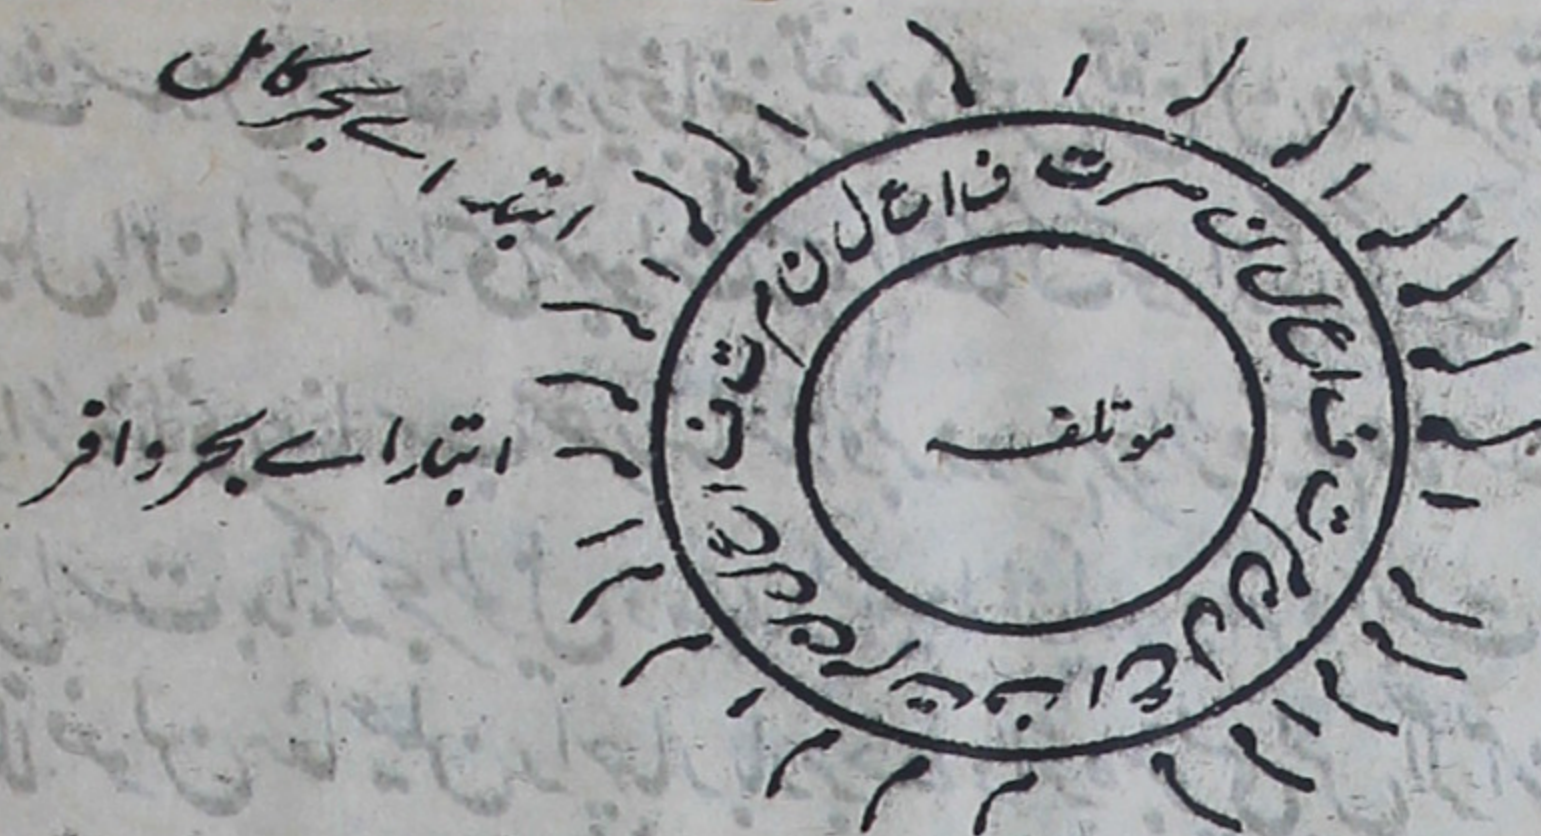 ابتداے بحر کامل
ابتداے بحر وافر
م ت ف ا ع ل ن م ت ف ا ع ل ن م ت ف ا ع ل ن م ت ف ا ع ل ن
موتلفہ